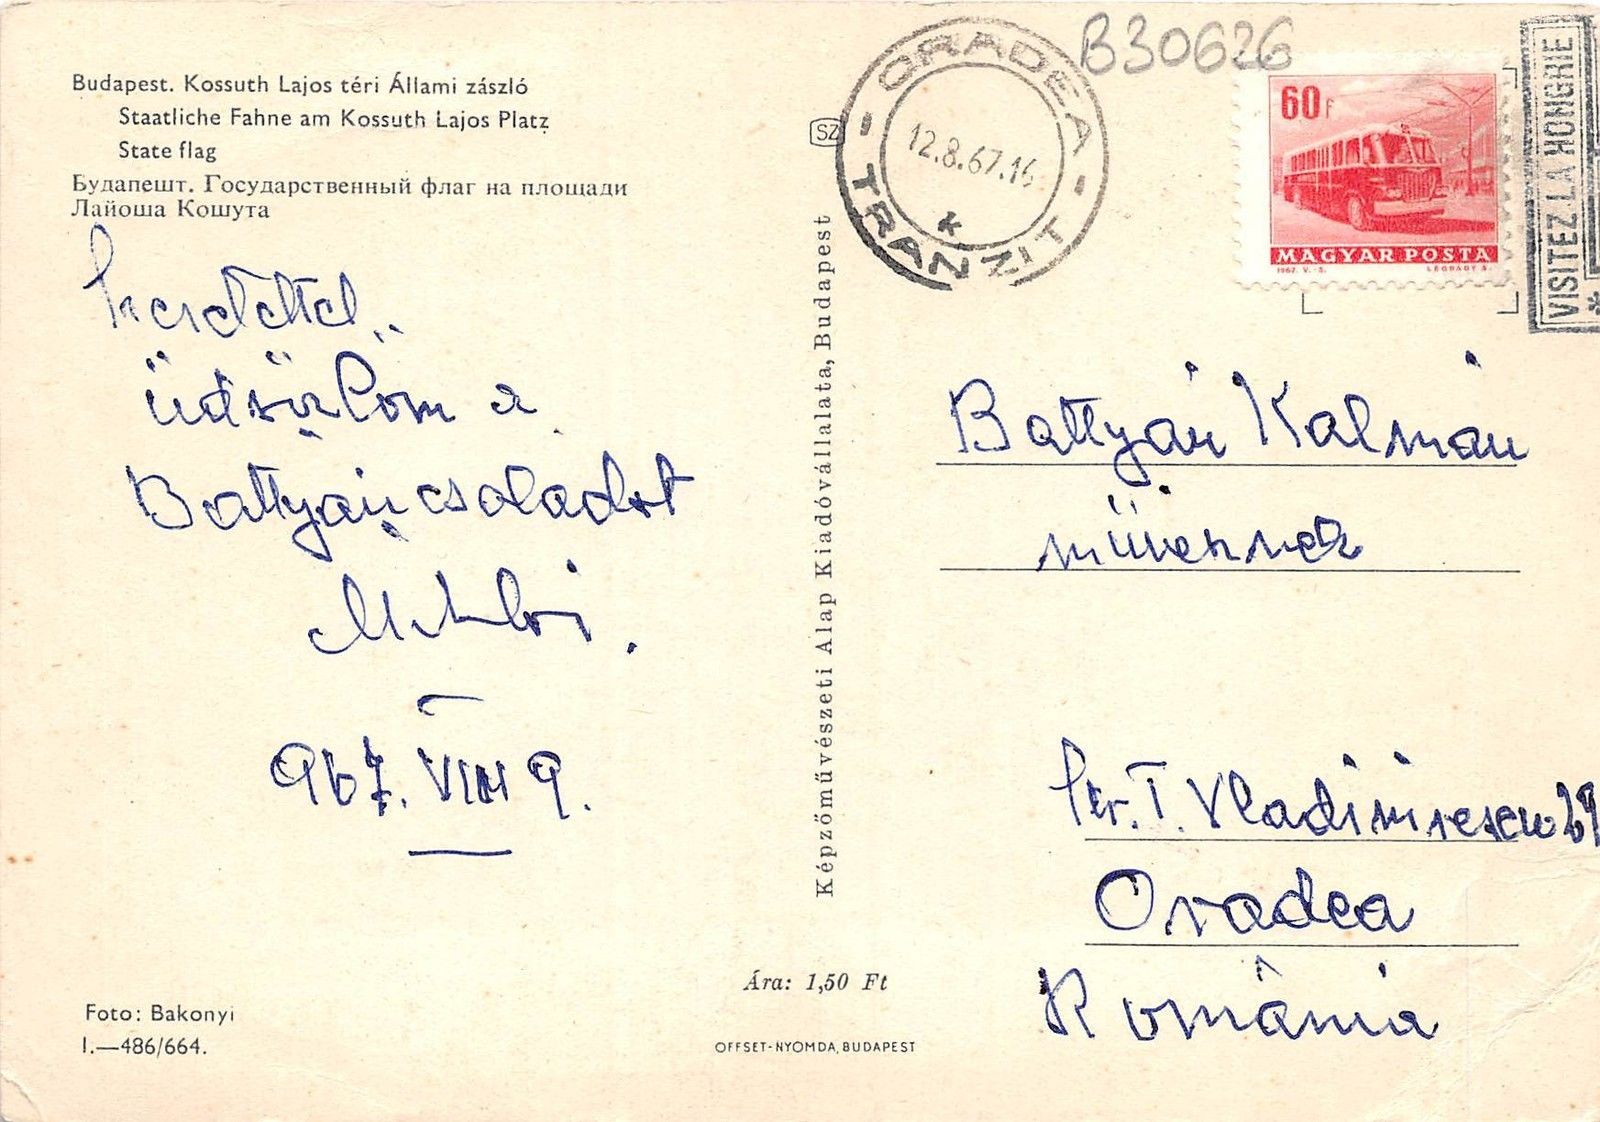 Budapest. Kossuth Lajos téri Állami zászló
Staatliche Fahne am Kossuth Lajos Platz
State flag
Будапешт. Государственный флаг на площади
Лайоша Кошута
üdvözlöm a
Battyán családot
967. VIII 9.
Foto: Bakonyi
I.—486/664.
Képzőművészeti Alap Kiadóvállalata, Budapest
Ára: 1,50 Ft
OFFSET-NYOMDA, BUDAPEST
SZ
ORADEA
12.8.67.16
K
TRANZIT
B30626
60 f
MAGYAR POSTA
1967. V. 5.
LÉGRÁDY S.
VISITEZ LA HONGRIE
Battyán Kalmán
művésznek
Str. T. Vladimirescu 29
Oradea
România